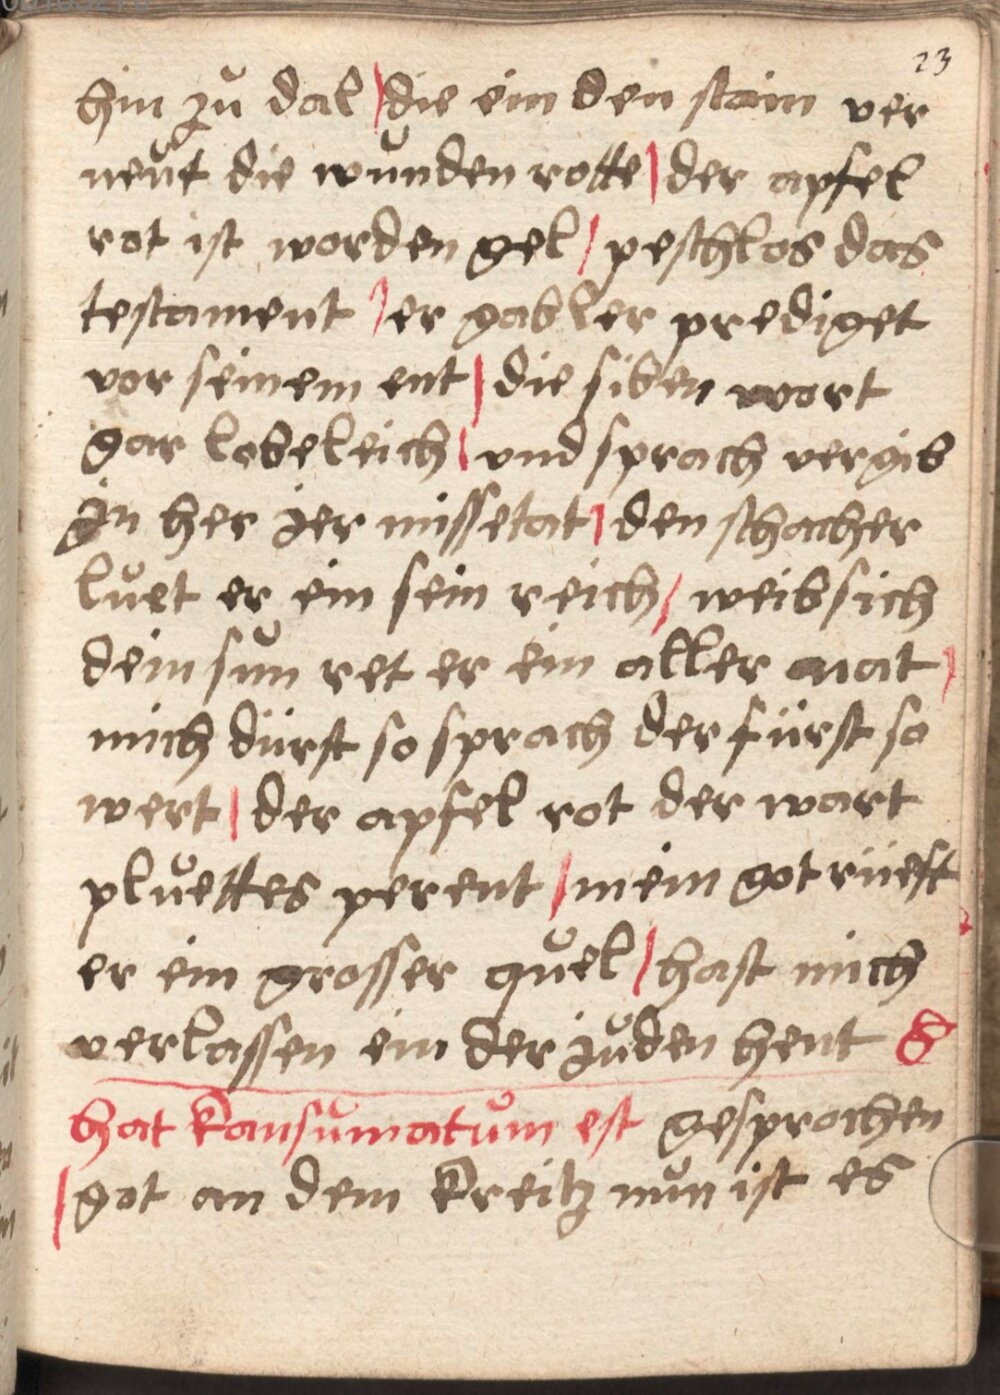 23
hin zu dal / die ein den stain ver
neut die wunden rotte / der apfel
rot ist worden gel / peschlos das
testament / er gabler prediget
vor seinem ent / die siben wort
gar lobeleich / vnd sprach vergib
jn her jer missetat / den schacher
luet er ein sein reich / weib sich
dein sun ret er ein aller nat /
mich dürst so sprach der fürst so
wert / der apfel rot der wart
pluettes perent / mein got rüeft
er ein grosser quel / hast mich
verlassen ein der juden hent
hat kansumatum est gesprochen
/ got an dem kreitz nun ist es